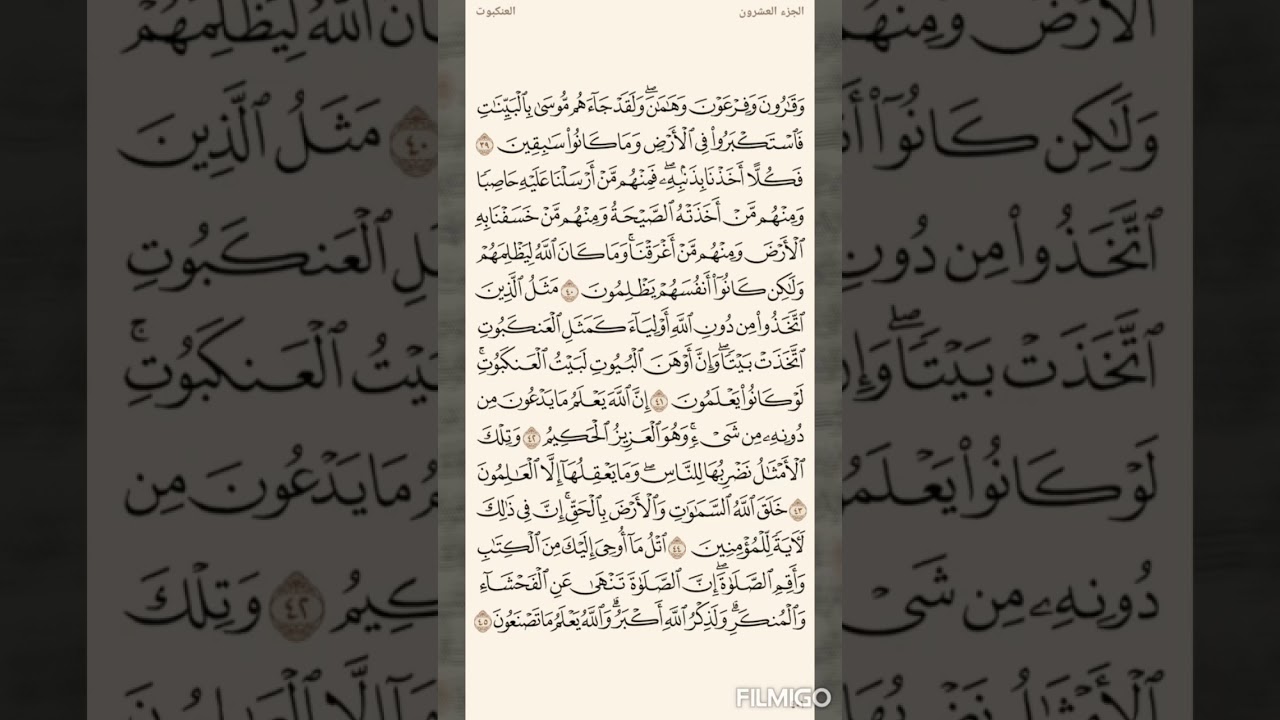 الجزء العشرون
العنكبوت
وَقَٰرُونَ وَفِرْعَوْنَ وَهَٰمَٰنَ ۖ وَلَقَدْ جَآءَهُم مُّوسَىٰ بِٱلْبَيِّنَٰتِ
فَٱسْتَكْبَرُوا۟ فِى ٱلْأَرْضِ وَمَا كَانُوا۟ سَٰبِقِينَ ٣٩
فَكُلًّا أَخَذْنَا بِذَنۢبِهِۦ ۖ فَمِنْهُم مَّنْ أَرْسَلْنَا عَلَيْهِ حَاصِبًا
وَمِنْهُم مَّنْ أَخَذَتْهُ ٱلصَّيْحَةُ وَمِنْهُم مَّنْ خَسَفْنَا بِهِ
ٱلْأَرْضَ وَمِنْهُم مَّنْ أَغْرَقْنَا ۚ وَمَا كَانَ ٱللَّهُ لِيَظْلِمَهُمْ
وَلَٰكِن كَانُوٓا۟ أَنفُسَهُمْ يَظْلِمُونَ ٤٠ مَثَلُ ٱلَّذِينَ
ٱتَّخَذُوا۟ مِن دُونِ ٱللَّهِ أَوْلِيَآءَ كَمَثَلِ ٱلْعَنكَبُوتِ
ٱتَّخَذَتْ بَيْتًا ۖ وَإِنَّ أَوْهَنَ ٱلْبُيُوتِ لَبَيْتُ ٱلْعَنكَبُوتِ ۚ
لَوْ كَانُوا۟ يَعْلَمُونَ ٤١ إِنَّ ٱللَّهَ يَعْلَمُ مَا يَدْعُونَ مِن
دُونِهِۦ مِن شَىْءٍ ۚ وَهُوَ ٱلْعَزِيزُ ٱلْحَكِيمُ ٤٢ وَتِلْكَ
ٱلْأَمْثَٰلُ نَضْرِبُهَا لِلنَّاسِ ۖ وَمَا يَعْقِلُهَآ إِلَّا ٱلْعَٰلِمُونَ
٤٣ خَلَقَ ٱللَّهُ ٱلسَّمَٰوَٰتِ وَٱلْأَرْضَ بِٱلْحَقِّ ۚ إِنَّ فِى ذَٰلِكَ
لَءَايَةً لِّلْمُؤْمِنِينَ ٤٤ ٱتْلُ مَآ أُوحِىَ إِلَيْكَ مِنَ ٱلْكِتَٰبِ
وَأَقِمِ ٱلصَّلَوٰةَ ۖ إِنَّ ٱلصَّلَوٰةَ تَنْهَىٰ عَنِ ٱلْفَحْشَآءِ
وَٱلْمُنكَرِ ۗ وَلَذِكْرُ ٱللَّهِ أَكْبَرُ ۗ وَٱللَّهُ يَعْلَمُ مَا تَصْنَعُونَ ٤٥
FILMIGO